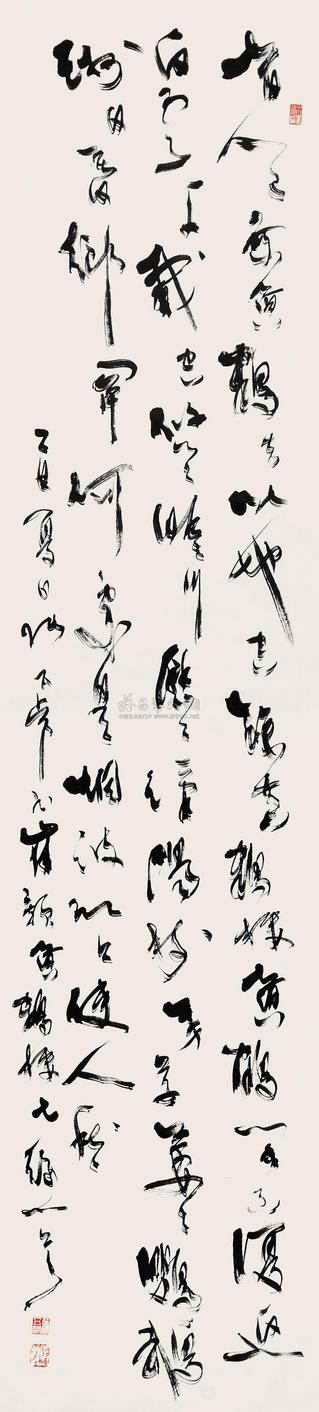 昔人已乘黄鹤去此地空余黄鹤楼黄鹤一去不复返
白云千载空悠悠晴川历历汉阳树芳草萋萋鹦鹉
洲日暮乡关何处是烟波江上使人愁
崔颢黄鹤楼七律一首